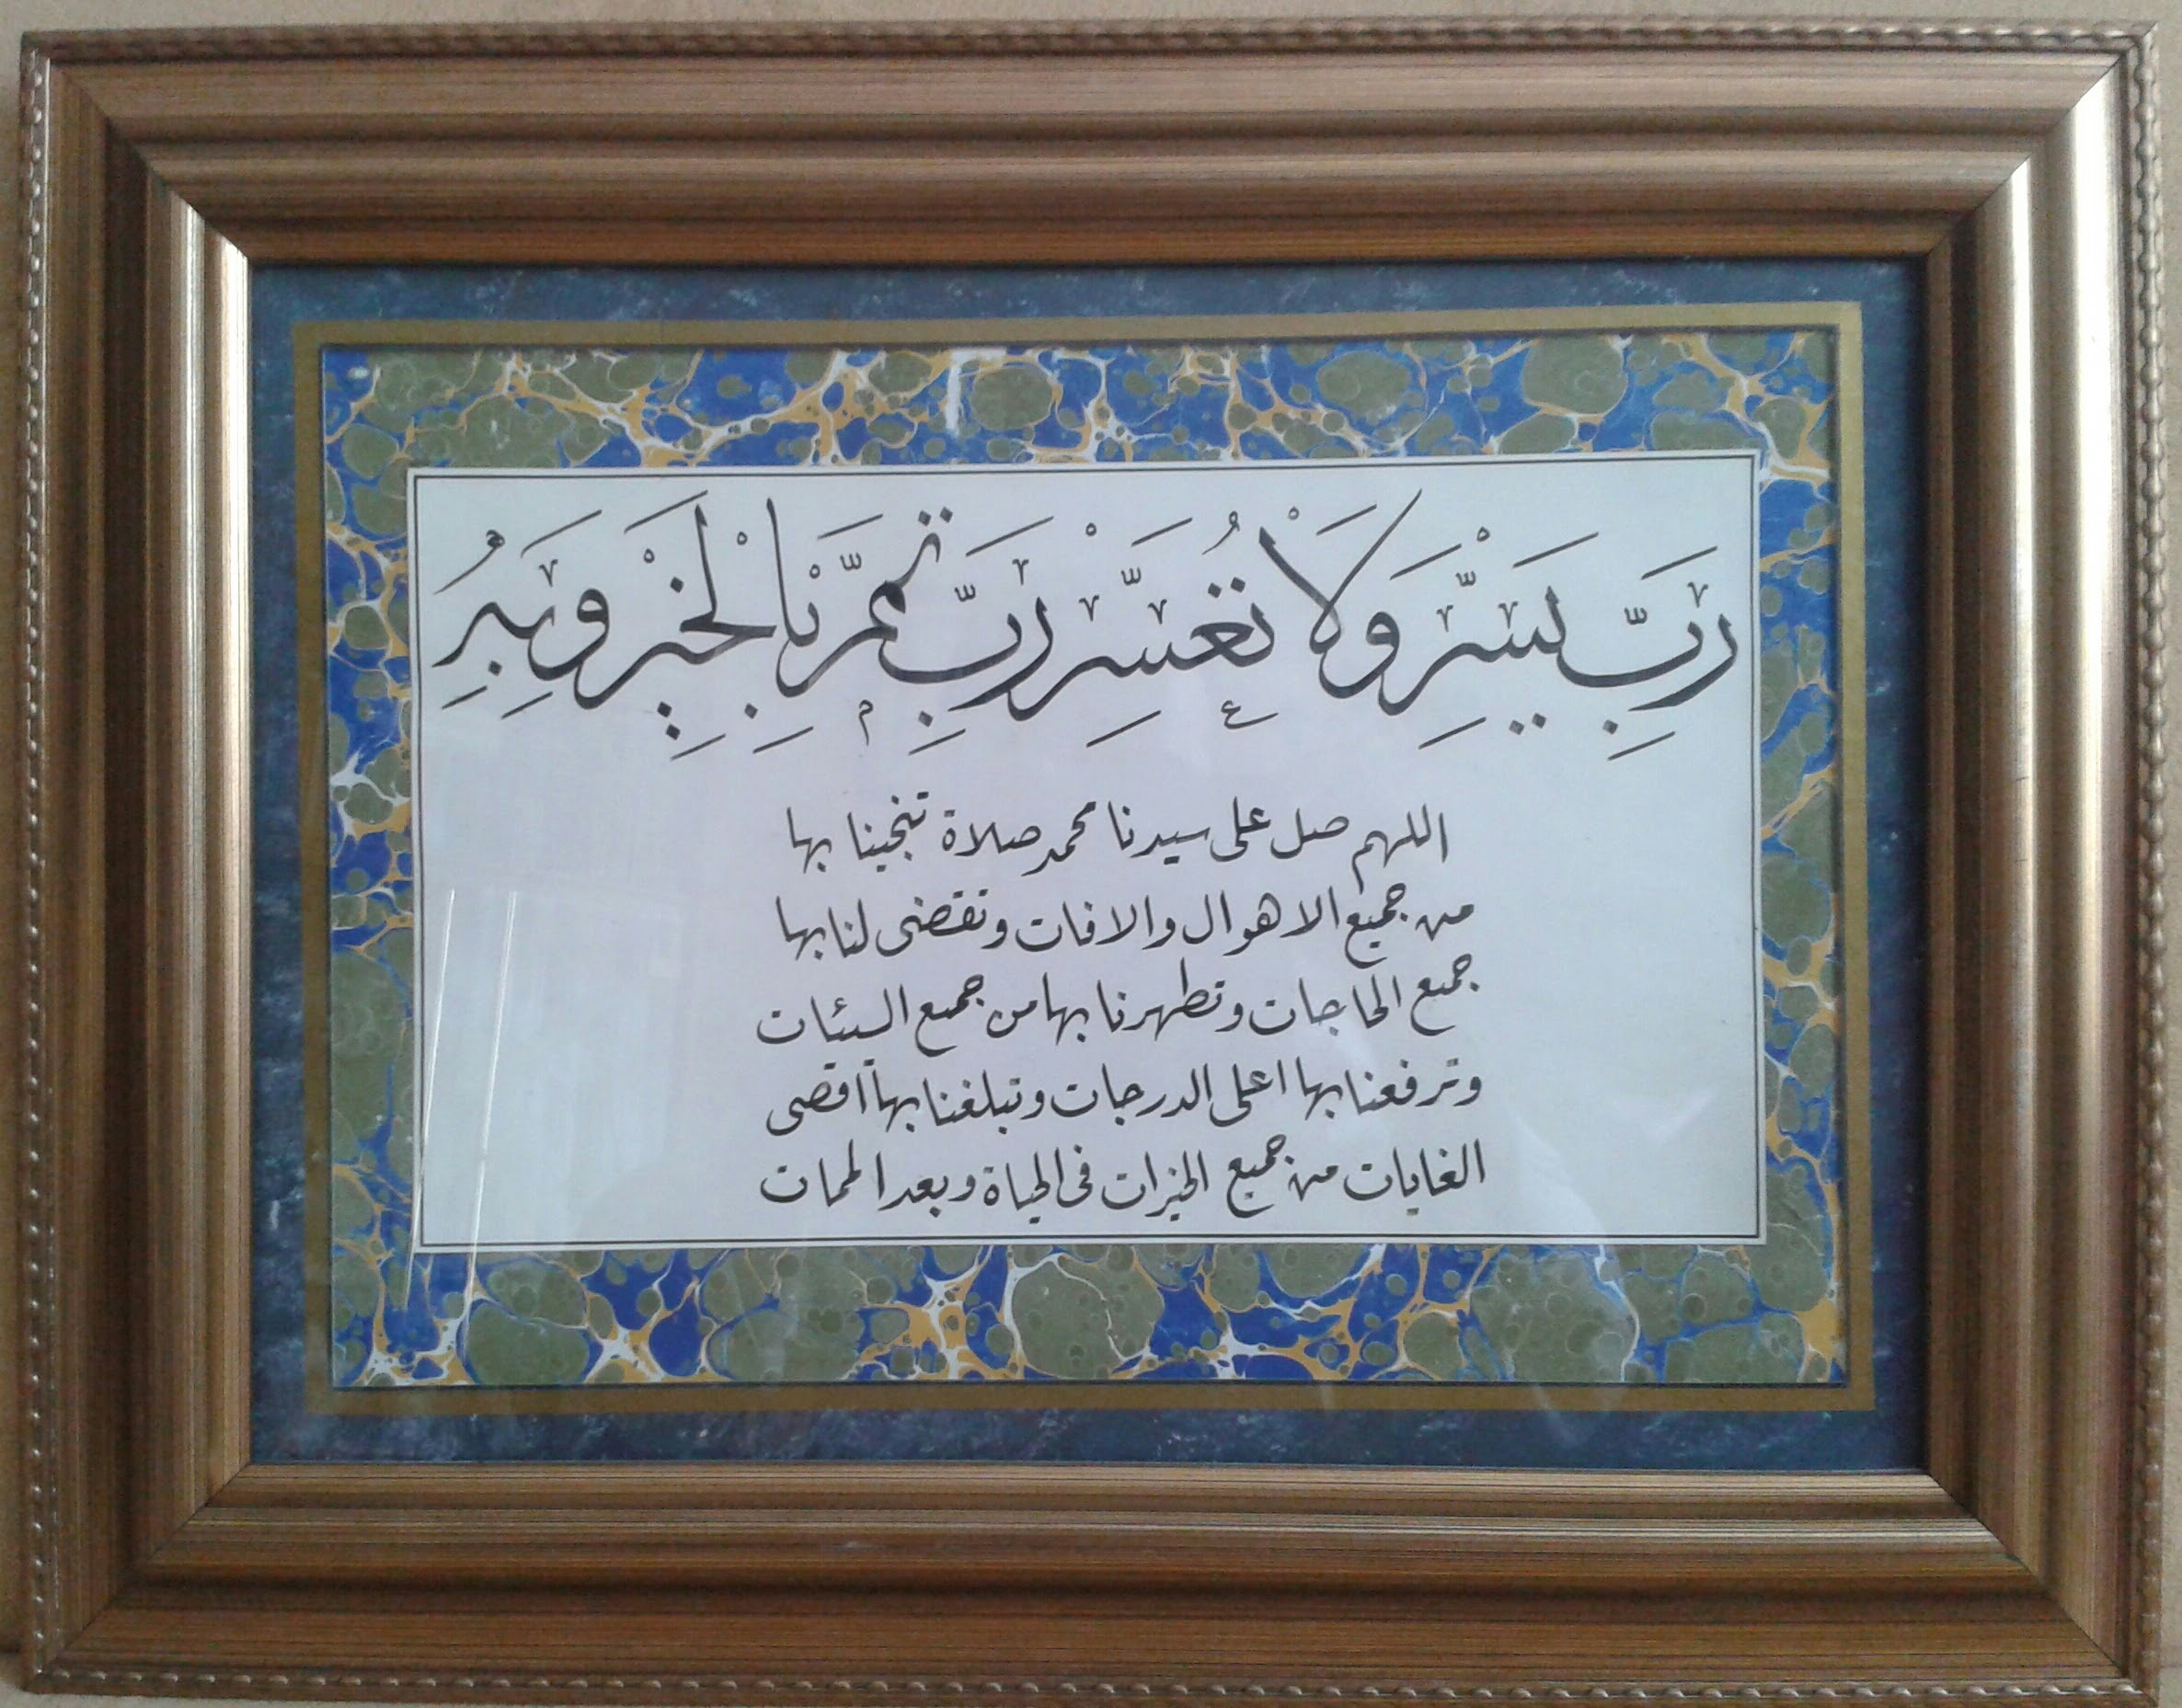 رَبِّ يَسِّرْ وَلَا تُعَسِّرْ رَبِّ تَمِّمْ بِالْخَيْرِ وَبِهِ
اللهم صل على سيدنا محمد صلاة تنجينا بها
من جميع الاهوال والافات وتقضى لنا بها
جميع الحاجات وتطهرنا بها من جميع السيئات
وترفعنا بها اعلى الدرجات وتبلغنا بها اقصى
الغايات من جميع الخيرات فى الحياة وبعد الممات